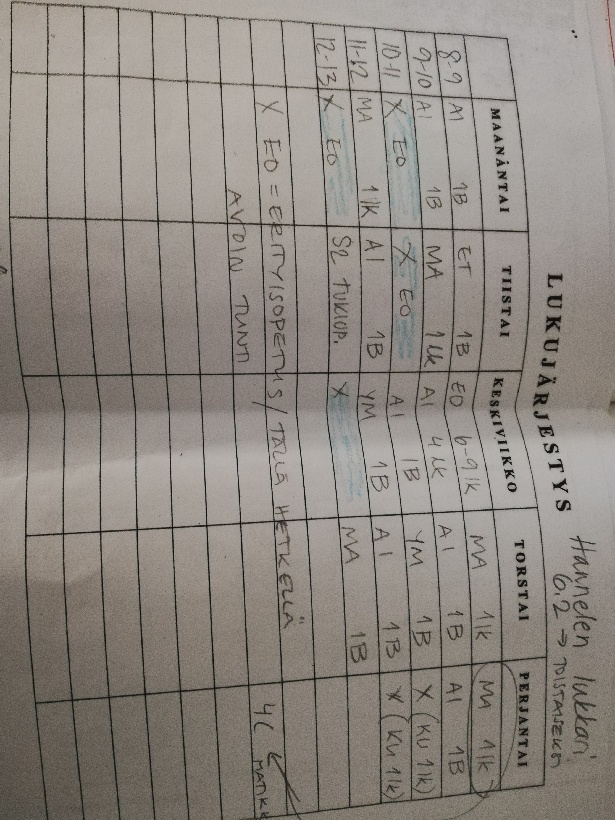 LUKUJÄRJESTYS
Hannelen lukkari
6.2 → TOISTAISEKSI
MAANANTAI TIISTAI KESKIVIIKKO TORSTAI PERJANTAI
8-9 AI 1B ET 1B EO 6-9lk MA 1lk MA 1lk
9-10 AI 1B MA 1lk AI 4lk AI 1B AI 1B
10-11 X EO X EO AI 1B YM 1B X (KU 1lk)
11-12 MA 1lk AI 1B YM 1B AI 1B X (KU 1lk)
12-13 X EO S2 TUKIOP. X MA 1B
X EO = ERITYISOPETUS / TÄLLÄ HETKELLÄ
AVOIN TUNTI
4C